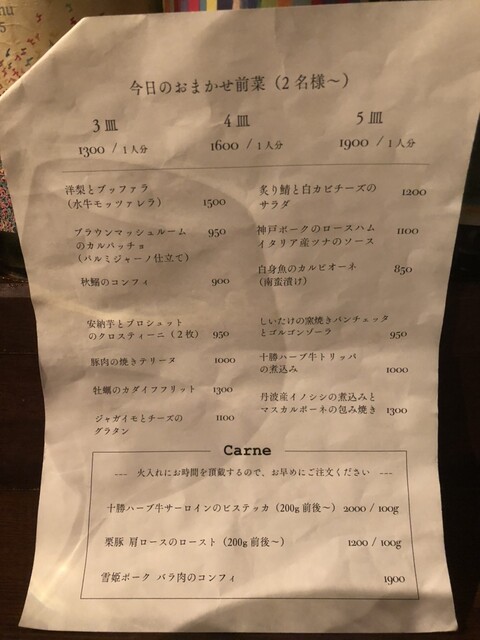 nu
5
今日のおまかせ前菜（2名様〜）
3皿 4皿 5皿
1300 / 1人分 1600 / 1人分 1900 / 1人分
洋梨とブッファラ
（水牛モッツァレラ） 1500
ブラウンマッシュルーム 950
のカルパッチョ
（パルミジャーノ仕立て）
秋鰯のコンフィ 900
安納芋とプロシュット
のクロスティーニ（2枚） 950
豚肉の焼きテリーヌ 1000
牡蠣のカダイフフリット 1300
ジャガイモとチーズの 1100
グラタン
炙り鯖と白カビチーズの 1200
サラダ
神戸ポークのロースハム 1100
イタリア産ツナのソース
白身魚のカルピオーネ 850
（南蛮漬け）
しいたけの窯焼きパンチェッタ
とゴルゴンゾーラ 950
十勝ハーブ牛トリッパ
の煮込み 1000
丹波産イノシシの煮込みと
マスカルポーネの包み焼き 1300
Carne
--- 火入れにお時間を頂戴するので、お早めにご注文ください ---
十勝ハーブ牛サーロインのビステッカ（200g前後〜） 2000 / 100g
栗豚 肩ロースのロースト（200g前後〜） 1200 / 100g
雪姫ポーク バラ肉のコンフィ 1900